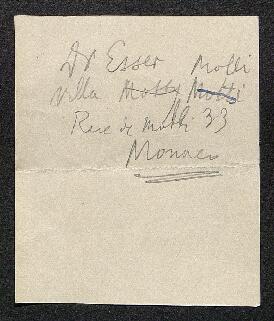 Dr Esser Molli
Villa Molly Motti
Rue de Molli 33
Monaco